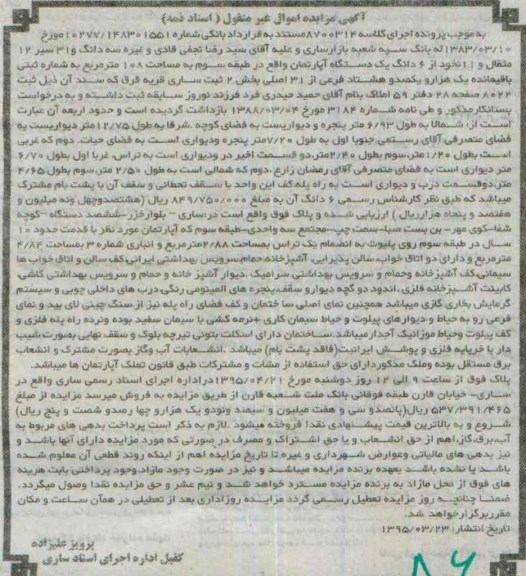 آگهی مزایده اموال غیر منقول ( اسناد ذمه)
به موجب پرونده اجرای کلاسه ۸۷۰۰۳۱۴ مستند به قرارداد بانکی شماره ۱۰۲۷۷/۱۴۸۳۰۱۵۵۱ مورخ
۱۳۸۳/۰۳/۱۰ له بانک سپه شعبه بازارساری و علیه آقای سید رضا نجفی قادی و غیره سه دانگ و ۳۱ سیر ۱۲
مثقال و ۱۱ نخود از ۶ دانگ یک دستگاه آپارتمان واقع در طبقه سوم به مساحت ۱۰۸ مترمربع به شماره ثبتی
باقیمانده یک هزارو یکصدو هشتاد فرعی از ۳۱ اصلی بخش ۲ ثبت ساری قریه قرق که سند آن ذیل ثبت
۸۰۲۲ صفحه ۲۸ دفتر ۵۹ املاک بنام آقای حمید حیدری فرد فرزند نوروز سابقه ثبت داشته و به درخواست
بستانکارمذکور و طی نامه شماره ۳۱۸۴ مورخ ۱۳۸۸/۰۳/۰۴ بازداشت گردیده است و حدود اربعه آن عبارت
است از: شمالا به طول ۶/۹۳ متر پنجره و دیواریست به فضای کوچه .شرقا به طول ۱۲/۷۵ متر دیواریست به
فضای متصرفی آقای رستمی.جنوبا اول به طول ۷/۲۰ متر پنجره ودیواری است به فضای حیات. دوم که غربی
است بطول ۱/۲۰ متر.سوم بطول ۲/۴۰ متر.دو قسمت اخیر در ودیواری است به تراس. غربا اول بطول ۶/۷۰
متر دیواری است به فضای متصرفی آقای رمضان زارع .دوم که شمالی است به طول ۲/۵۰ متر.سوم بطول ۴/۶۵
متر.دوقسمت درب و دیواری است به راه پله.کف این واحد با سقف تحتانی و سقف آن با پشت بام مشترک
میباشد که طبق نظر کارشناس رسمی ۶ دانگ آن به مبلغ ۸۴۹/۷۵۰/۰۰۰ ریال (هشتصدوچهل ونه میلیون و
هفتصد و پنجاه هزارریال ) ارزیابی شده و پلاک فوق واقع است در:ساری – بلوارخزر–ششصد دستگاه –کوچه
شفا–کوی مهر– بن بست صبا–سمت چپ–مجتمع سه واحدی–طبقه سوم که آپارتمان مورد نظر با قدمت حدود ۱۰
سال در طبقه سوم روی پیلوت به انضمام یک تراس بمساحت ۲/۸۸ مترمربع و انباری شماره ۳ بمساحت ۴/۸۲
مترمربع و دارای دو اتاق خواب سالن پذیرایی، آشپزخانه حمام.سرویس بهداشتی ایرانی.کف سالن و اتاق خواب ها
سیمانی.کف آشپزخانه وحمام و سرویس بهداشتی سرامیک .دیوار آشپز خانه و حمام و سرویس بهداشتی کاشی.
کابینت آشپزخانه فلزی،اندود دو گچه دیوار و سقف.پنجره های آلمینومی رنگی.درب های داخلی چوبی و سیستم
گرمایش بخاری گازی میباشد همچنین نمای اصلی سا ختمان و کف فضای راه پله نیز از سنگ چینی لای بید و نمای
فرعی رو به حیاط و دیوارهای پیلوت و حیاط سیمان کاری +نرمه کشی با سیمان سفید بوده ونرده راه پله فلزی و
کف پیلوت وحیاط موزائیک آجدارمیباشد.ساختمان دارای اسکلت بتونی تیرچه بلوک و سقف نهایی بصورت شیب
دار با خرپایه فلزی و پوشش ایرانیت(فاقد پشت بام) میباشد .انشعابات آب وگاز بصورت مشترک و انشعاب
برق مستقل بوده وملک مذکوردارای حق استفاده از مشاعات و مشترکات طبق قانون تملک آپارتمان ها میباشد.
پلاک فوق از ساعت ۹ الی ۱۲ روز دوشنبه مورخ ۱۳۹۵/۰۴/۲۱ دراداره اجرای اسناد رسمی ساری واقع در
ساری– خیابان قارن طبقه فوقانی بانک ملت شعبه قارن از طریق مزایده به فروش میرسد مزایده از مبلغ
۵۳۷/۳۹۱/۴۶۵ ریال(پانصدو سی و هفت میلیون و سیصد ونودو یک هزارو چها رصدو شصت و پنج ریال)
شروع و به بالاترین قیمت پیشنهادی نقدا فروخته میشود .لازم به ذکر است پرداخت بدهی های مربوط به
آب،برق،گاز،اهم از حق انشعاب و یا حق اشتراک و مصرف در صورتی که مورد مزایده دارای آنها باشد و
نیز بدهی های مالیاتی وعوارض شهرداری و غیره تا تاریخ مزایده اهم از اینکه روند قطعی آن معلوم شده
باشد یا نشده باشد بعهده برنده مزایده میباشد و نیز در صورت وجود مازاد.وجود پرداختی بابت هزینه
های فوق از محل مازاد به برنده مزایده مسترد خواهد شد و نیم عشر و حق مزایده نقدا وصول میگردد.
ضمنا چنانچه روز مزایده تعطیل رسمی گردد مزایده روزاداری بعد از تعطیلی در همان ساعت و مکان
مقرربرگزارخواهد شد.
تاریخ انتشار: ۱۳۹۵/۰۳/۲۳
پرویز علیزاده
کفیل اداره اجرای اسناد ساری